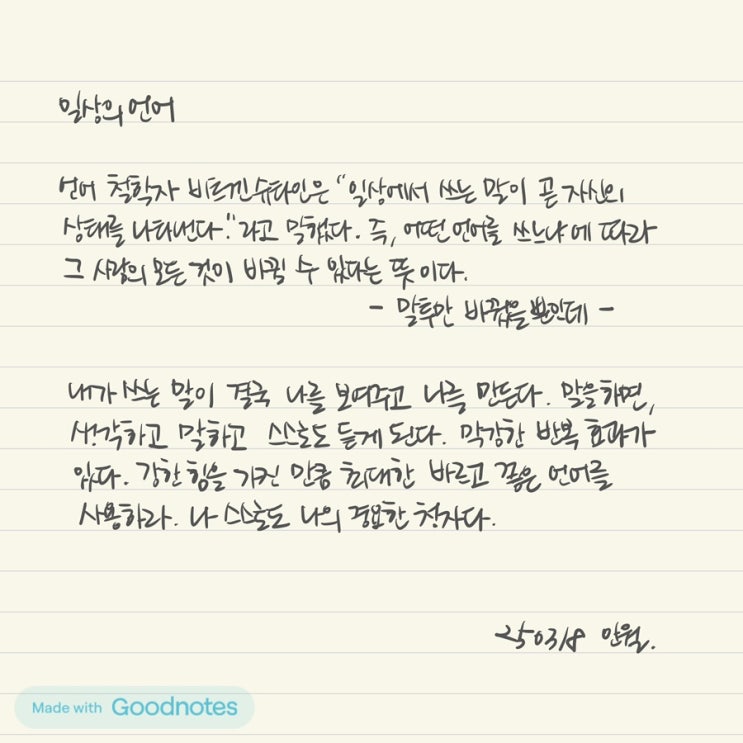 일상의 언어
언어 철학자 비트겐슈타인은 "일상에서 쓰는 말이 곧 자신의
상태를 나타낸다."라고 말했다. 즉, 어떤 언어를 쓰느냐에 따라
그 사람의 모든 것이 바뀔 수 있다는 뜻이다.
- 말투만 바꿨을 뿐인데 -
내가 쓰는 말이 결국 나를 보여주고 나를 만든다. 말을하면,
생각하고 말하고 스스로도 듣게 된다. 막강한 반복 효과가
있다. 강한 힘을 가진 만큼 최대한 바르고 좋은 언어를
사용하라. 나 스스로도 나의 중요한 청자다.
250318 만월.
Made with Goodnotes